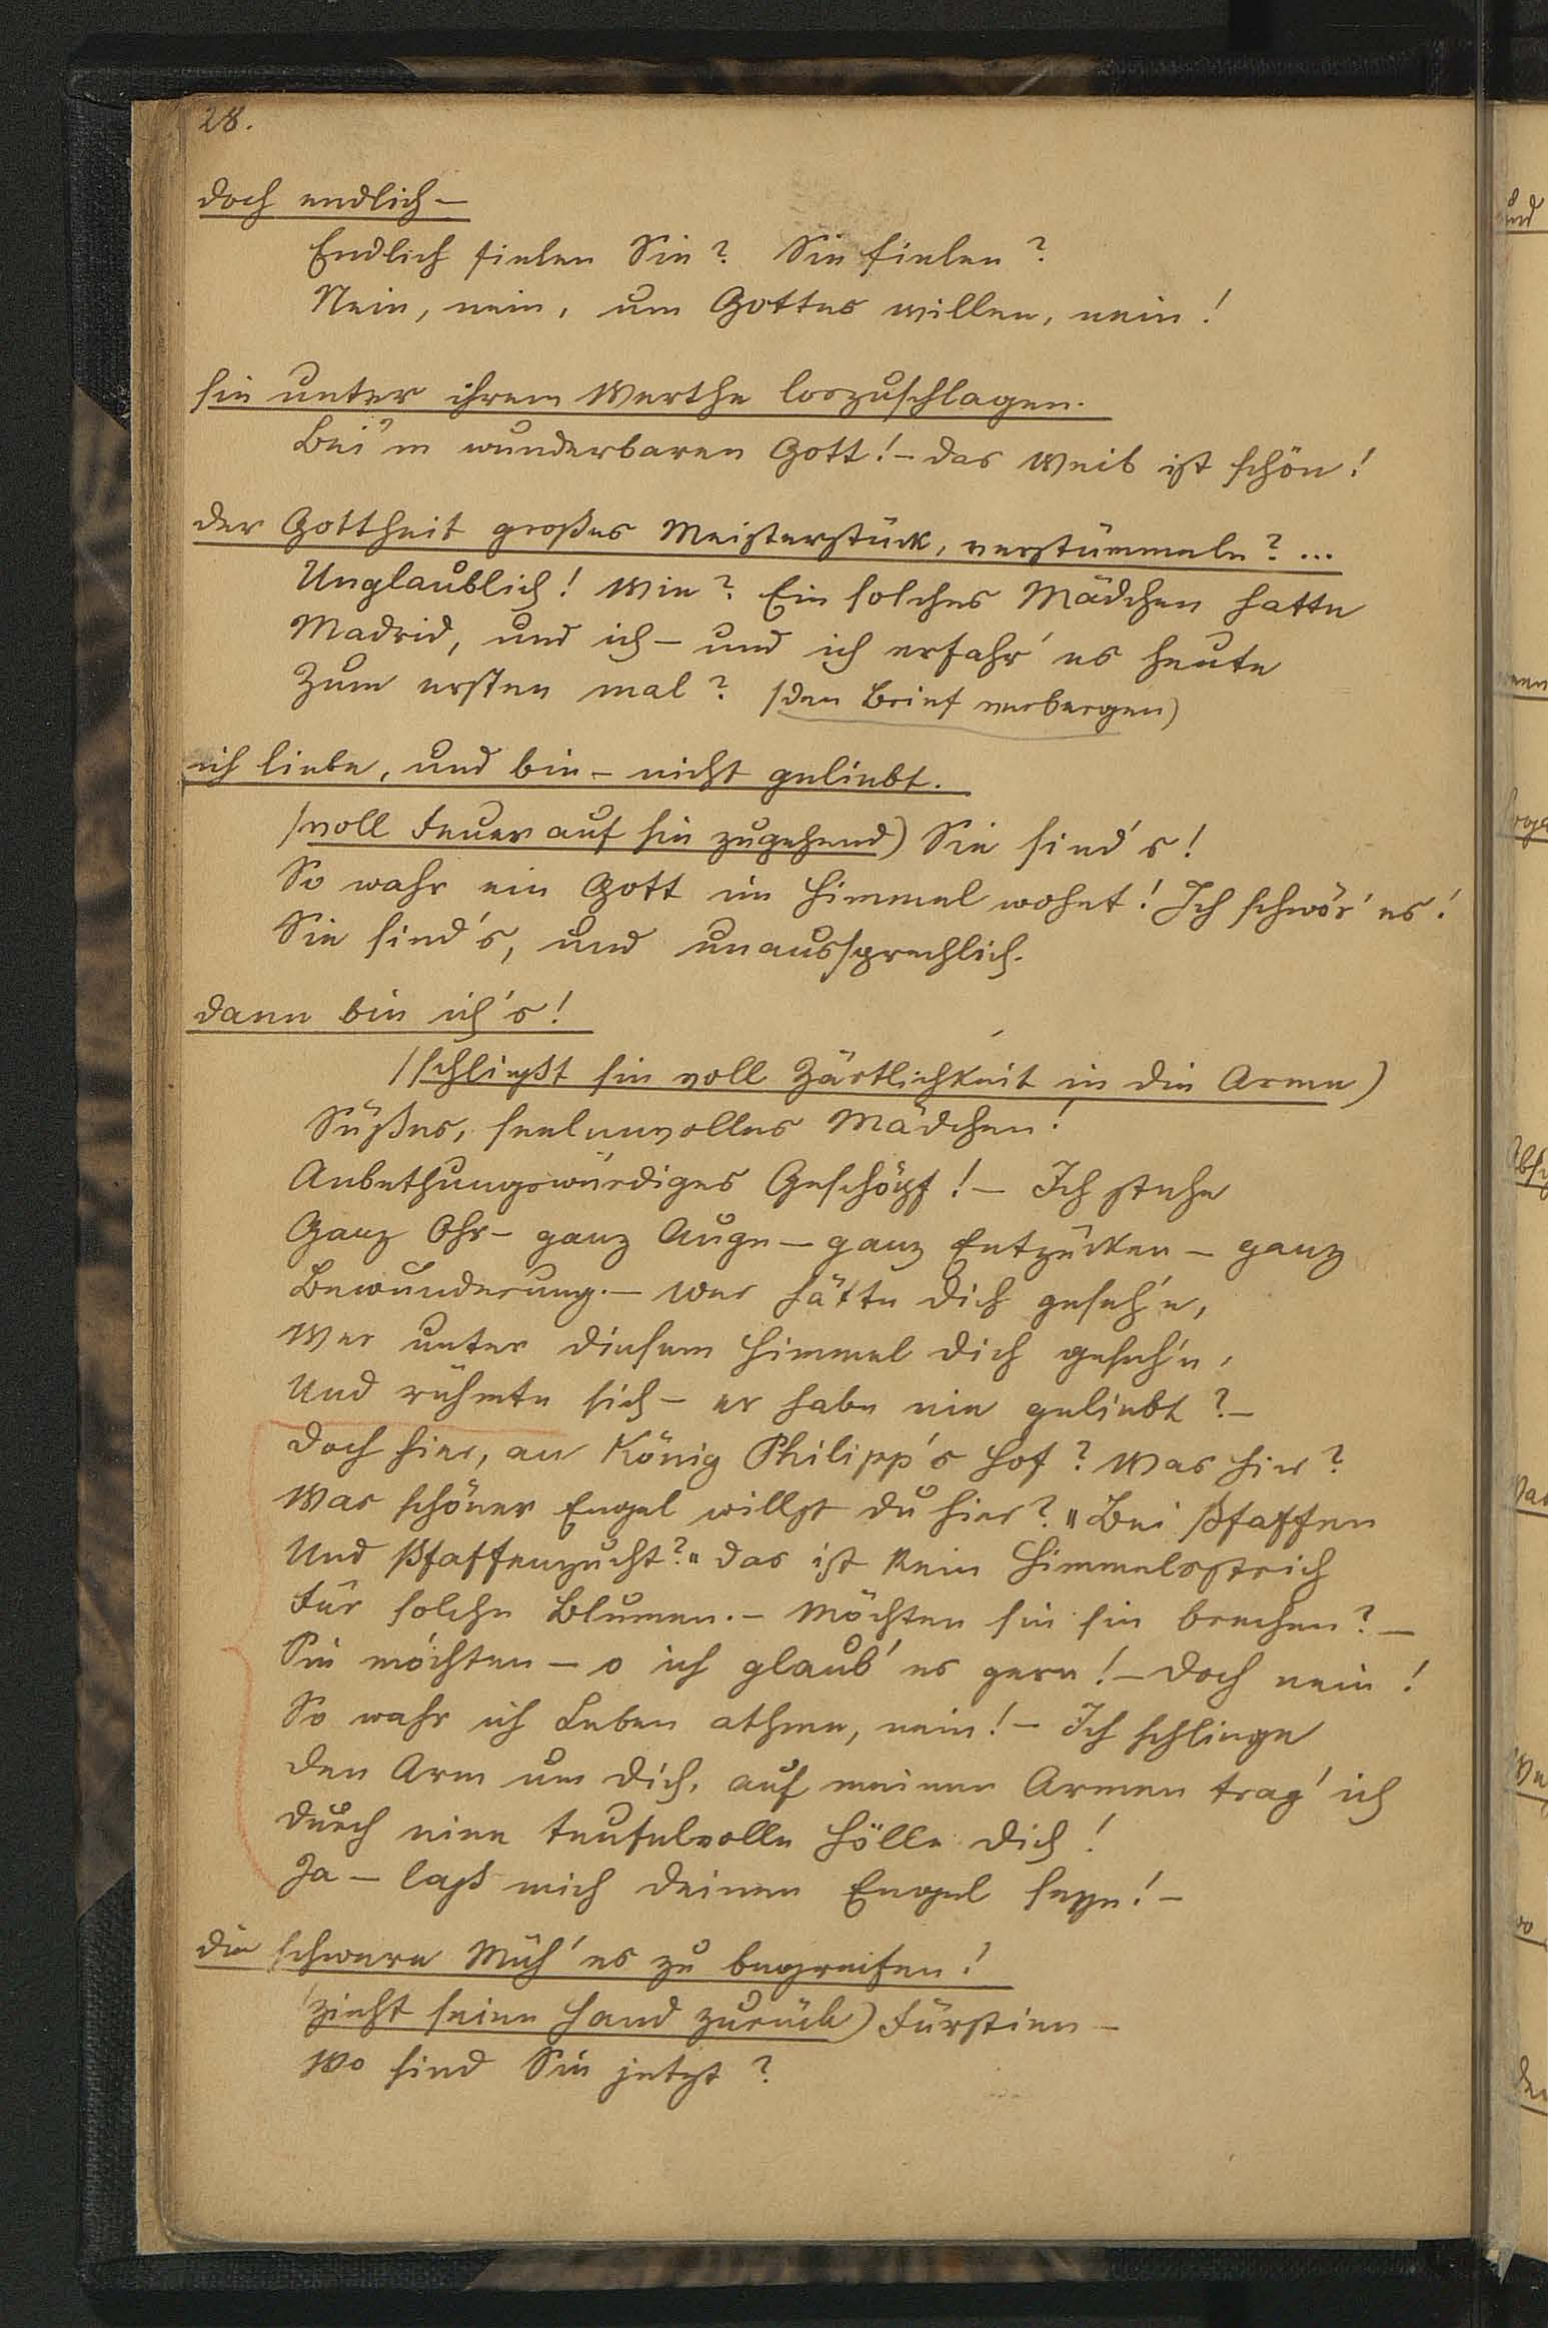 28.
doch endlich—
Endlich fielen Sie? Sie fielen?
Nein, nein, um Gottes willen, nein!
sie unter ihrem Werthe loszuschlagen.
Bei'm wunderbaren Gott!– das Weib ist schön!
der Gottheit großes Meisterstück, verstümmeln? ...
Unglaublich! Wie? Ein solches Mädchen hatte
Madrid, und ich – und ich erfahr' es heute
Zum ersten mal? /den Brief verbergen)
ich liebe, und bin – nicht geliebt.
/voll Feuer auf sie zugehend) Sie sind's!
So wahr ein Gott im Himmel wohnt! Ich schwör' es!
Sie sind's, und unaussprechlich.
dann bin ich's!
/schließt sie voll Zärtlichkeit in die Arme)
Süßes, seelenvolles Mädchen!
Anbethungswürdiges Geschöpf! – Ich stehe
Ganz Ohr – ganz Auge – ganz Entzücken – ganz
Bewunderung. – Wer hätte dich geseh'n,
Wer unter diesem Himmel dich geseh'n,
Und rühmte sich – er habe nie geliebt? –
Doch hier, an König Philipp's Hof? Was hier?
Was schöner Engel willst du hier? "Bei Pfaffen
Und Pfaffenzucht?" das ist kein Himmelsstrich
Für solche Blumen. – Möchten sie sie brechen? –
Sie möchten – o ich glaub' es gern! – Doch nein!
So wahr ich Leben athme, nein! – Ich schlinge
den Arm um dich, auf meinen Armen trag' ich
durch eine teufelvolle Hölle dich!
Ja – laß mich deinen Engel seyn! –
die schwere Müh' es zu begreifen!
/zieht seine Hand zurück) Fürstinn –
Wo sind Sie jetzt?